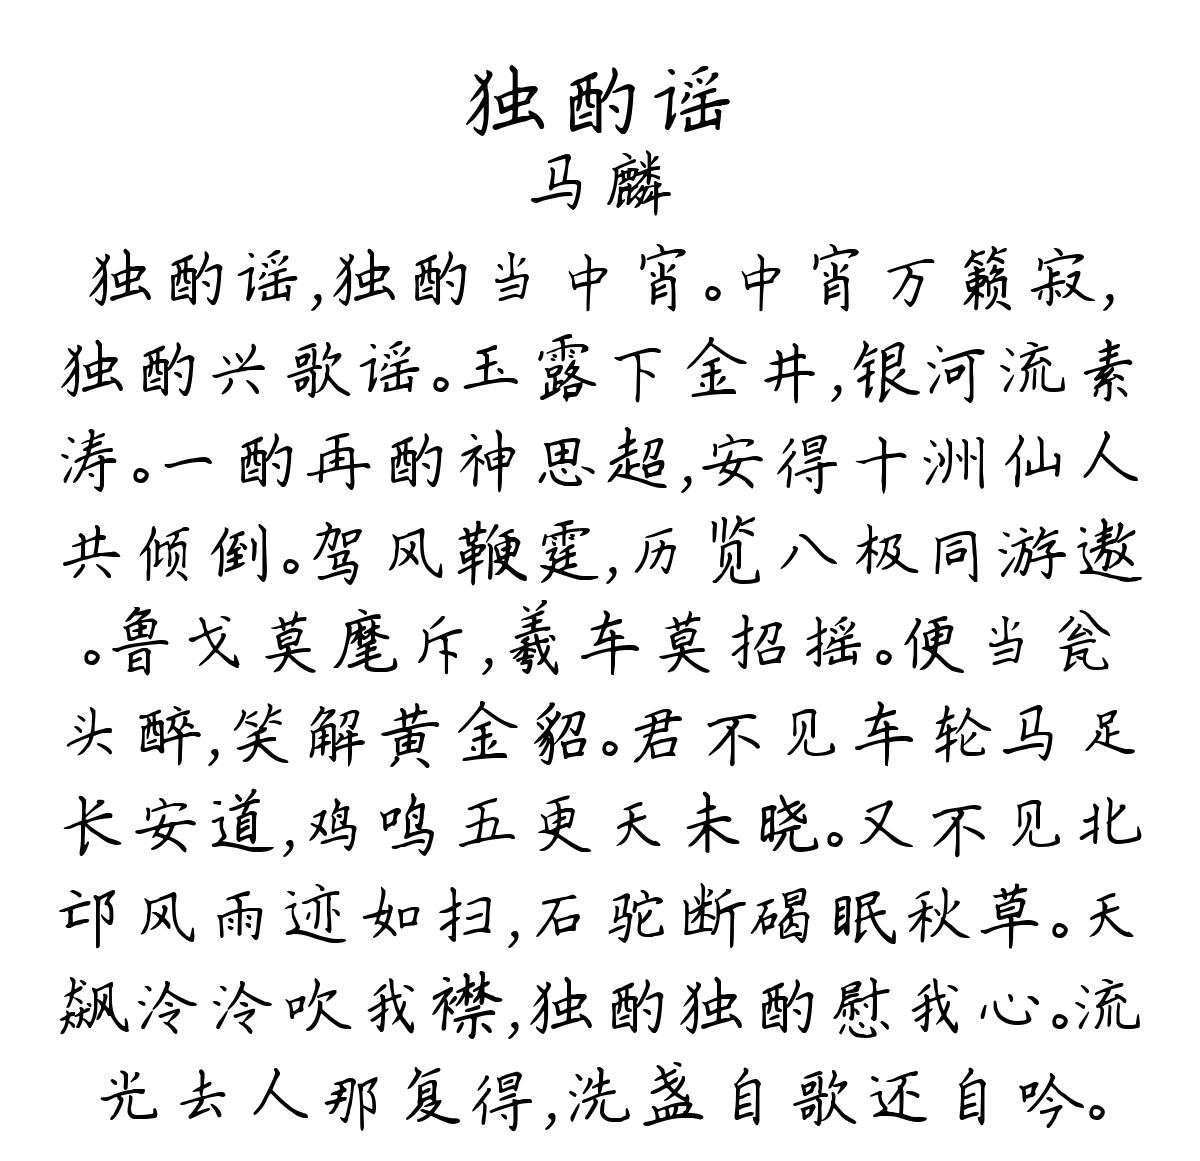 独酌谣
马麟
独酌谣,独酌当中宵。中宵万籁寂,
独酌兴歌谣。玉露下金井,银河流素
涛。一酌再酌神思超,安得十洲仙人
共倾倒。驾风鞭霆,历览八极同游遨
。鲁戈莫麾斥,羲车莫招摇。便当瓮
头醉,笑解黄金貂。君不见车轮马足
长安道,鸡鸣五更天未晓。又不见北
邙风雨迹如扫,石驼断碣眠秋草。天
飙泠泠吹我襟,独酌独酌慰我心。流
光去人那复得,洗盏自歌还自吟。